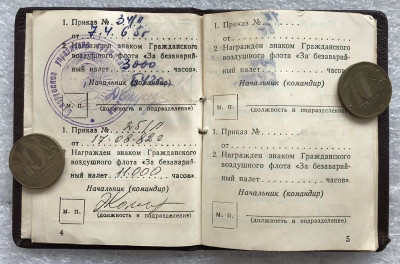 1. Приказ №
от 7.4.65г
2. Награжден знаком Гражданского
воздушного флота «За безаварий-
ный налет 3000 часов».
Начальник (командир)
М. П.
(должность и подразделение)
1. Приказ № 251/Л
от 17.08.
2. Награжден знаком Гражданского
воздушного флота «За безаварий-
ный налет 11000 часов»
Начальник (командир)
М. П.
(должность и подразделение)
4
1. Приказ №
от
2. Награжден знаком Гражданского
воздушного флота «За безаварий-
ный налет часов».
Начальник (командир)
М. П.
(должность и подразделение)
1. Приказ №
от
2. Награжден знаком Гражданского
воздушного флота «За безаварий-
ный налет часов».
Начальник (командир)
М. П.
(должность и подразделение)
5